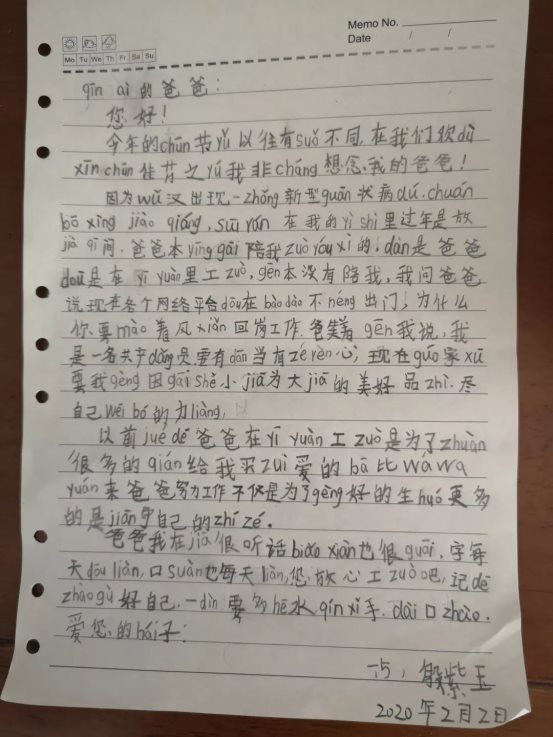 Memo No.
Date / /
Mo Tu We Th Fr Sa Su
qīn ài的爸爸:
您好!
今年的chūn节yǔ以往有suǒ不同,在我们欢dù
xīn chūn佳节之yú我非cháng想念我的爸爸!
因为wǔ汉出现一zhǒng新型guān状病dú.chuán
bō xìng jiào qiáng,suī rán在我的yì shi里过年是放
jià qī间.爸爸本yīng gāi陪我zuò yóu xì的;dàn是爸爸
doū是在yī yuàn里工zuò,gēn本没有陪我,我问爸爸
说现在各个网络平台doū在bào dào不néng出门,为什么
你要mào着风xiǎn回岗工作.爸笑着gēn我说,我
是一名共产dǎng员要有dān当有zé rèn心;现在guó家xū
要我gèng因gāi shě小jiā为大jiā的美好品zhì.尽
自己wēi bó的力liàng,
以前jué dé爸爸在yī yuàn工zuò是为了zhuàn
很多的qián给我买zuì爱的bā比wá wa
yuán来爸爸努力工作不仅是为了gèng好的生huó更多
的是jiān守自己的zhí zé.
爸爸我在jiā很听话biǎo xiàn也很guāi.字每
天doū liàn,口suàn也每天liàn,您放心工zuò吧,记dé
zhào gù好自己.一dìn要多hē水qín xǐ手.dài口zhào.
爱您的hái子:
一5,殷紫玉
2020年2月2日